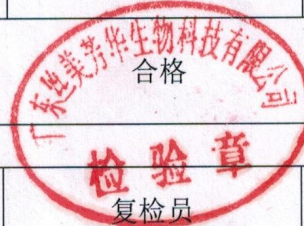 广东丝美芳华生物科技有限公司
合格
检验章
复检员